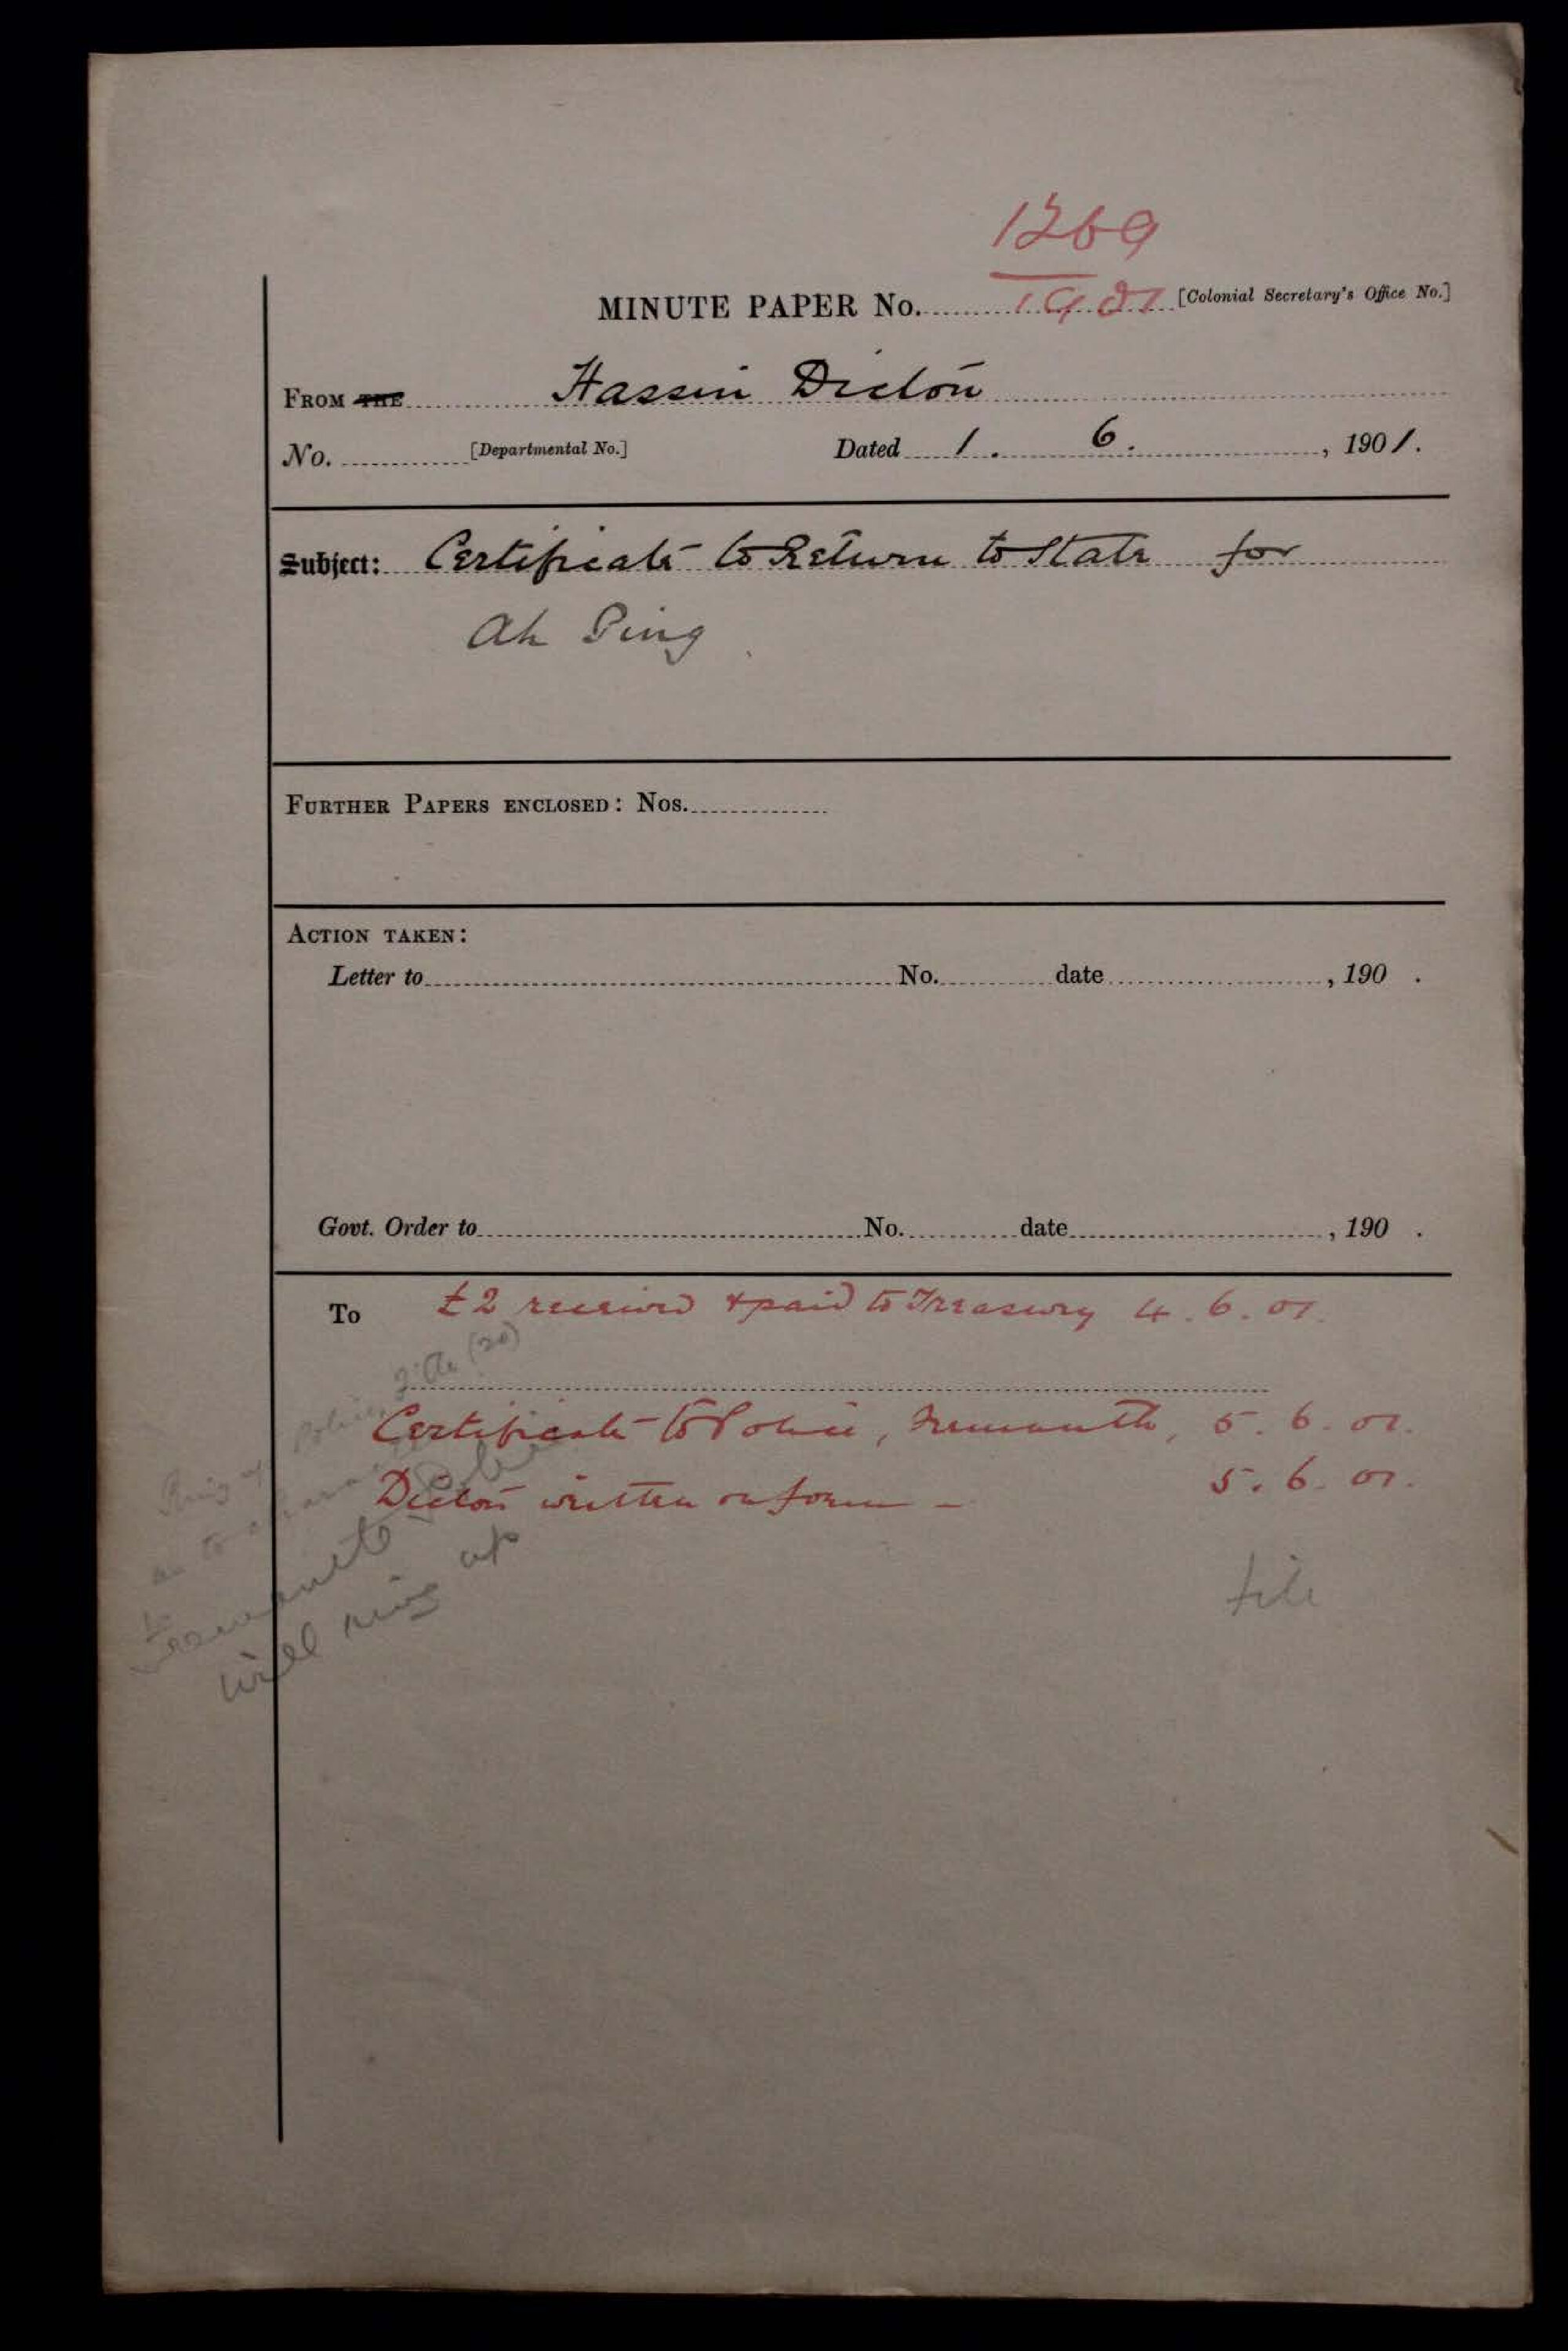 1269
MINUTE PAPER No. 1901 [Colonial Secretary's Office No.]
FROM THE Hassin Dictón
No. [Departmental No.] Dated 1. 6. , 1901.
Subject: Certificate to Return to State for
Ah Ping
FURTHER PAPERS ENCLOSED: Nos.
ACTION TAKEN:
Letter to No. date , 190 .
Govt. Order to No. date , 190 .
To £2 received & paid to Treasury 4.6.01.
Certificate to Police, Fremantle, 5.6.01.
written on form - 5.6.01.
Ring up
as to
Fremantle
will ring up
file